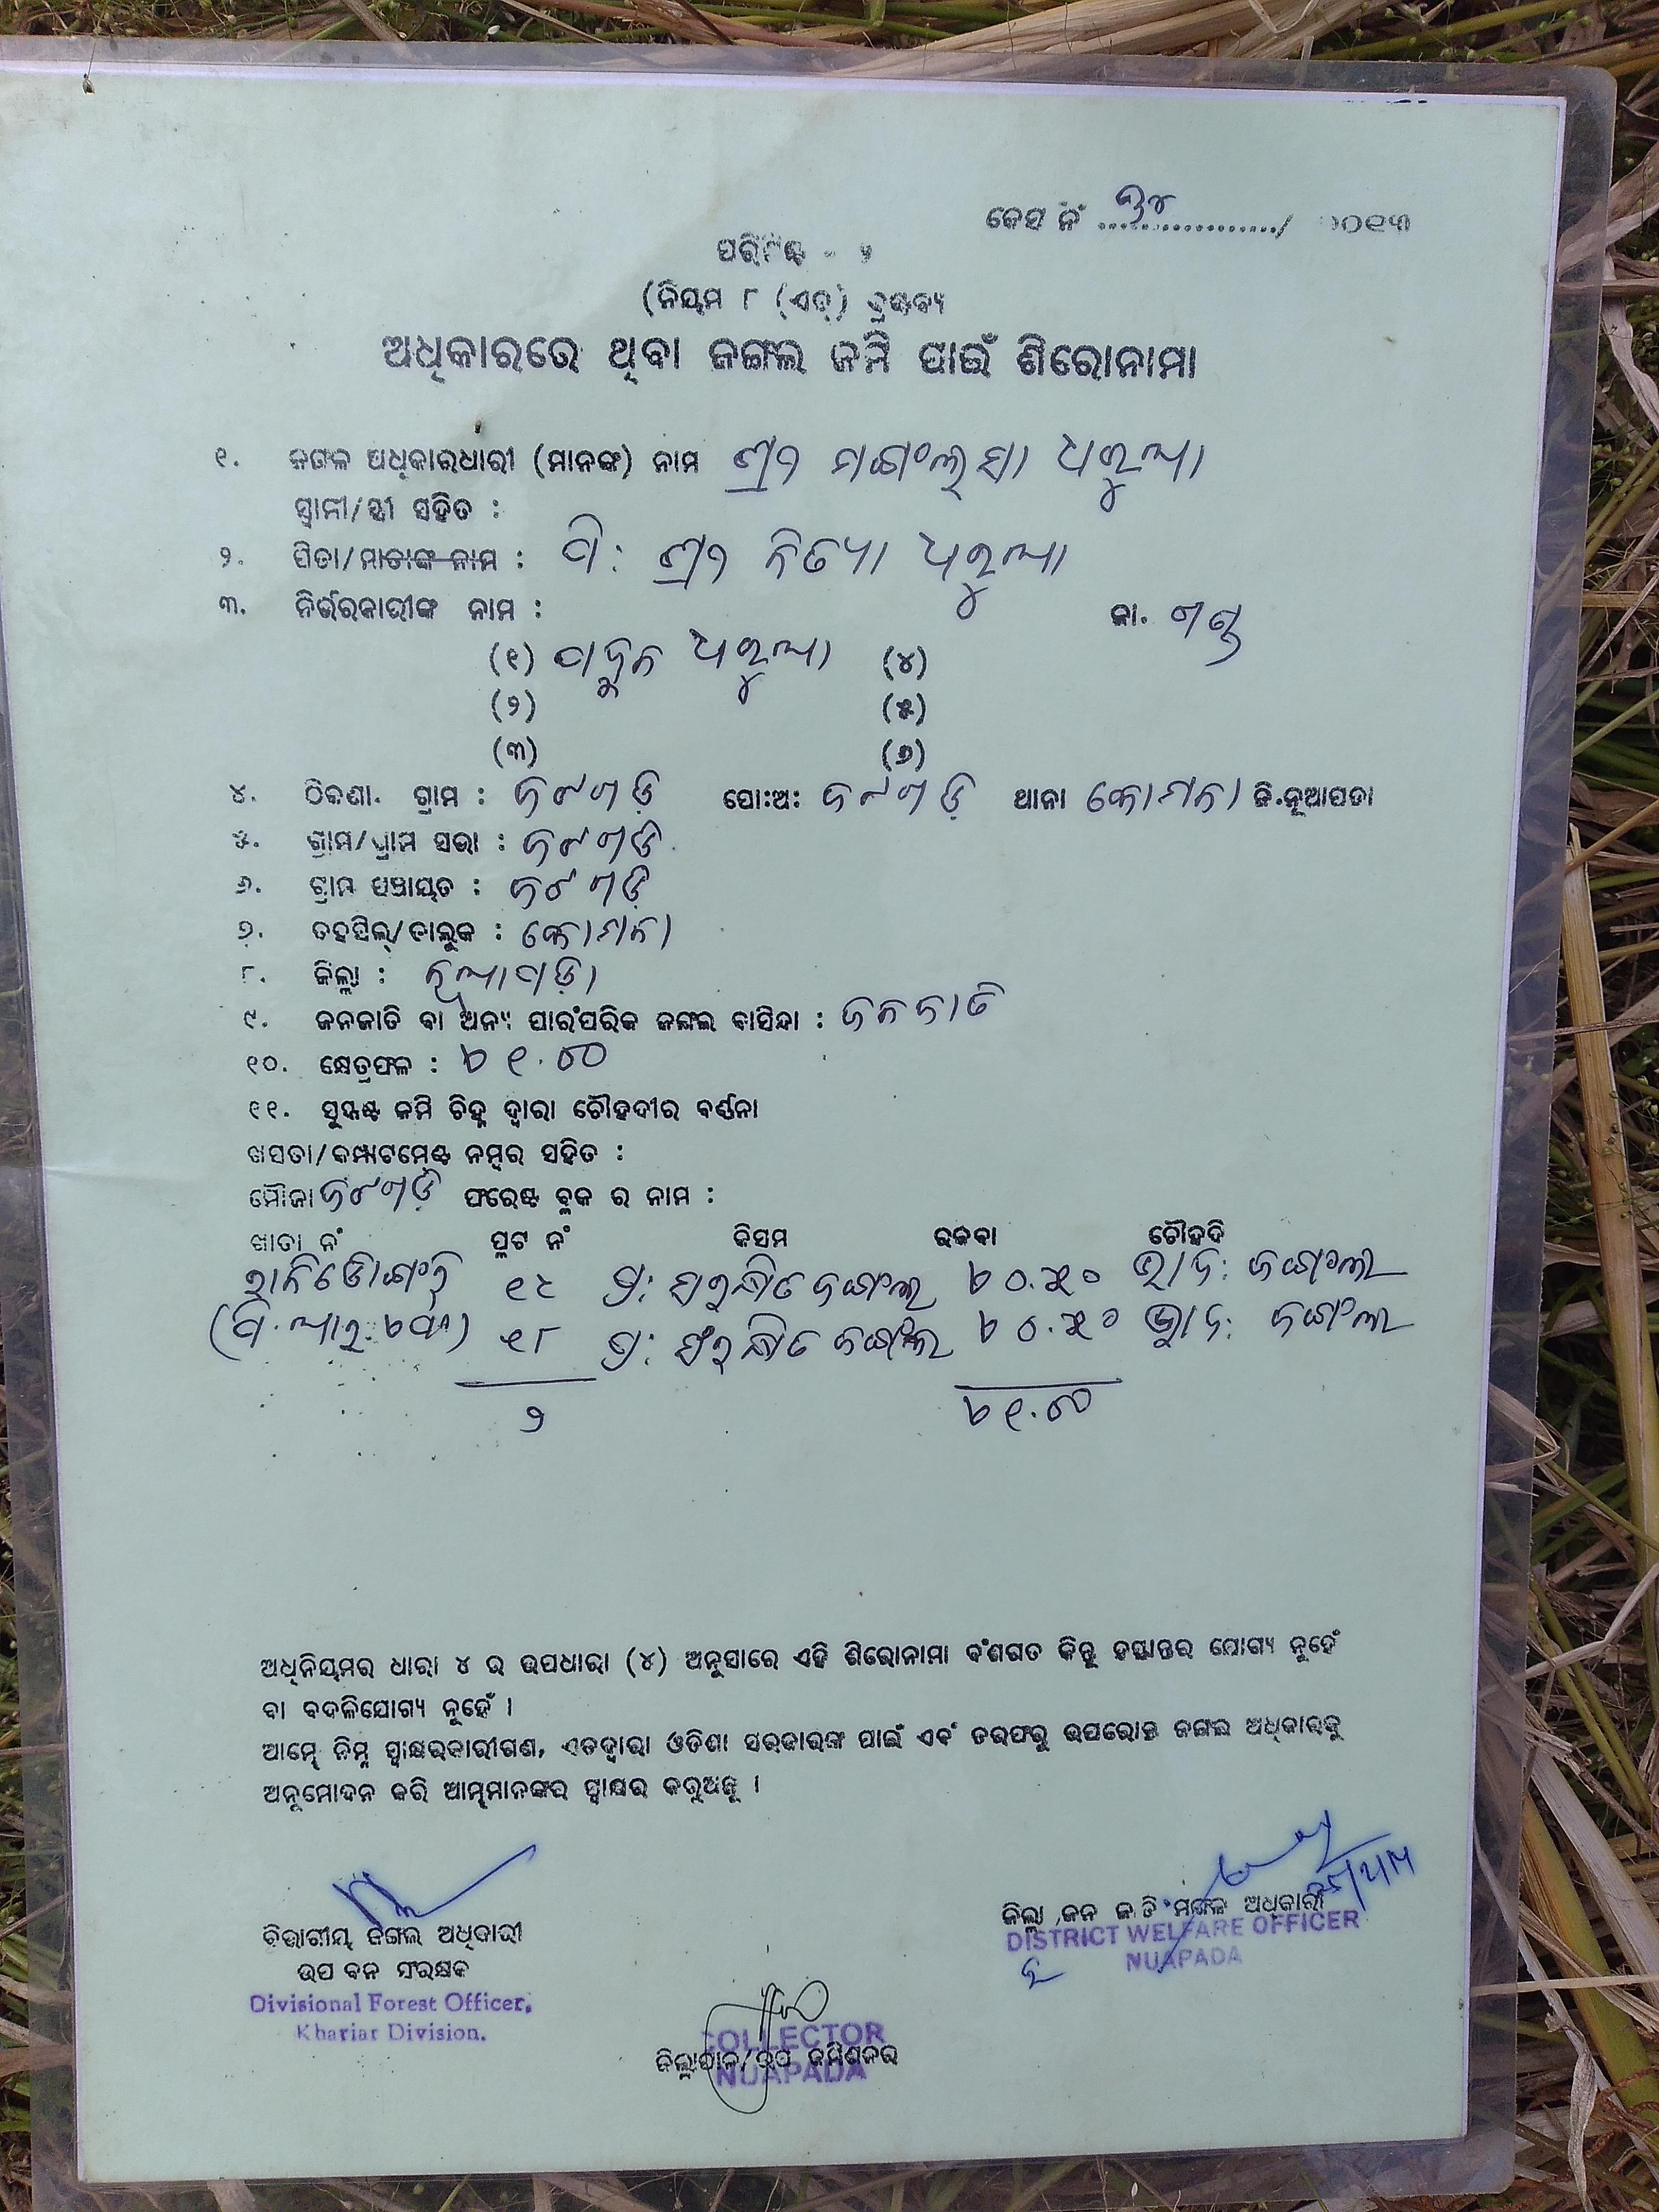 କେସ ନଂ ୩୪ ................../ ୨୦୧୩
ପରିଶିଷ୍ଟ - ୨
(ନିୟମ ୮ (ଏଚ୍) ଦ୍ରଷ୍ଟବ୍ୟ
ଅଧିକାରରେ ଥିବା ଜଙ୍ଗଲ ଜମି ପାଇଁ ଶିରୋନାମା
୧. ଜଙ୍ଗଲ ଅଧିକାରଧାରୀ (ମାନଙ୍କ) ନାମ ଶ୍ରୀ ମଙ୍ଗଲ୍‌ସା ଧରୁଆ
ସ୍ୱାମୀ/ସ୍ତ୍ରୀ ସହିତ :
୨. ପିତା/ମାତାଙ୍କ ନାମ : ପି: ଶ୍ରୀ ନିତ୍ୟା ଧରୁଆ
୩. ନିର୍ଭରକାରୀଙ୍କ ନାମ : ଜା. ଗଣ୍ଡ
(୧) ପାଦୁନ ଧରୁଆ (୪)
(୨) (୫)
(୩) (୬)
୪. ଠିକଣା. ଗ୍ରାମ : ପୋ:ଅ: ଥାନା କୋମନା ଜି.ନୂଆପଡା
୫. ଗ୍ରାମ/ଗ୍ରାମ ସଭା :
୬. ଗ୍ରାମ ପଞ୍ଚାୟତ :
୭. ତହସିଲ୍/ତାଲୁକ : କୋମନା
୮. ଜିଲ୍ଲା : ନୂଆପଡ଼ା
୯. ଜନଜାତି ବା ଅନ୍ୟ ପାରଂପରିକ ଜଙ୍ଗଲ ବାସିନ୍ଦା : ଜନଜାତି
୧୦. କ୍ଷେତ୍ରଫଳ : ୧.୦୦
୧୧. ସୁସ୍ପଷ୍ଟ ଜମି ଚିହ୍ନ ଦ୍ୱାରା ଚୌହଦୀର ବର୍ଣ୍ଣନା
ଖସଡା/କମ୍ପାଟମେଣ୍ଟ ନମ୍ବର ସହିତ :
ମୌଜା ଫରେଷ୍ଟ ବ୍ଲକ ର ନାମ :
ଖାତା ନଂ ପ୍ଲଟ ନଂ କିସମ ରକବା ଚୌହଦି
୧୫ ପ୍ର: ସଂରକ୍ଷିତ ଜଙ୍ଗଲ ୦.୫୦ ଜଙ୍ଗଲ
୧୮ ପ୍ର: ସଂରକ୍ଷିତ ଜଙ୍ଗଲ ୦.୫୦ ଜଙ୍ଗଲ
୨ ୧.୦୦
ଅଧିନିୟମର ଧାରା ୪ ର ଉପଧାରା (୪) ଅନୁସାରେ ଏହି ଶିରୋନାମା ବଂଶଗତ କିନ୍ତୁ ହସ୍ତାନ୍ତର ଯୋଗ୍ୟ ନୁହେଁ
ବା ବଦଳିଯୋଗ୍ୟ ନୁହେଁ ।
ଆମ୍ଭେ ନିମ୍ନ ସ୍ୱାଛରକାରୀଗଣ, ଏତଦ୍ୱାରା ଓଡିଶା ସରକାରଙ୍କ ପାଇଁ ଏବଂ ତରଫରୁ ଉପରୋକ୍ତ ଜଙ୍ଗଲ ଅଧିକାରକୁ
ଅନୁମୋଦନ କରି ଆମ୍ଭମାନଙ୍କର ସ୍ୱାକ୍ଷର କରୁଅଛୁ ।
ଜିଲ୍ଲା ଜନ ଜାତି ମଙ୍ଗଳ ଅଧିକାରୀ
DISTRICT WELFARE OFFICER
NUAPADA
ବିଭାଗୀୟ ଜଙ୍ଗଲ ଅଧିକାରୀ
ଉପ ବନ ସଂରକ୍ଷକ
Divisional Forest Officer,
Khariar Division.
COLLECTOR
ଜିଲ୍ଲାପାଳ/ଉପ କମିଶନର
NUAPADA